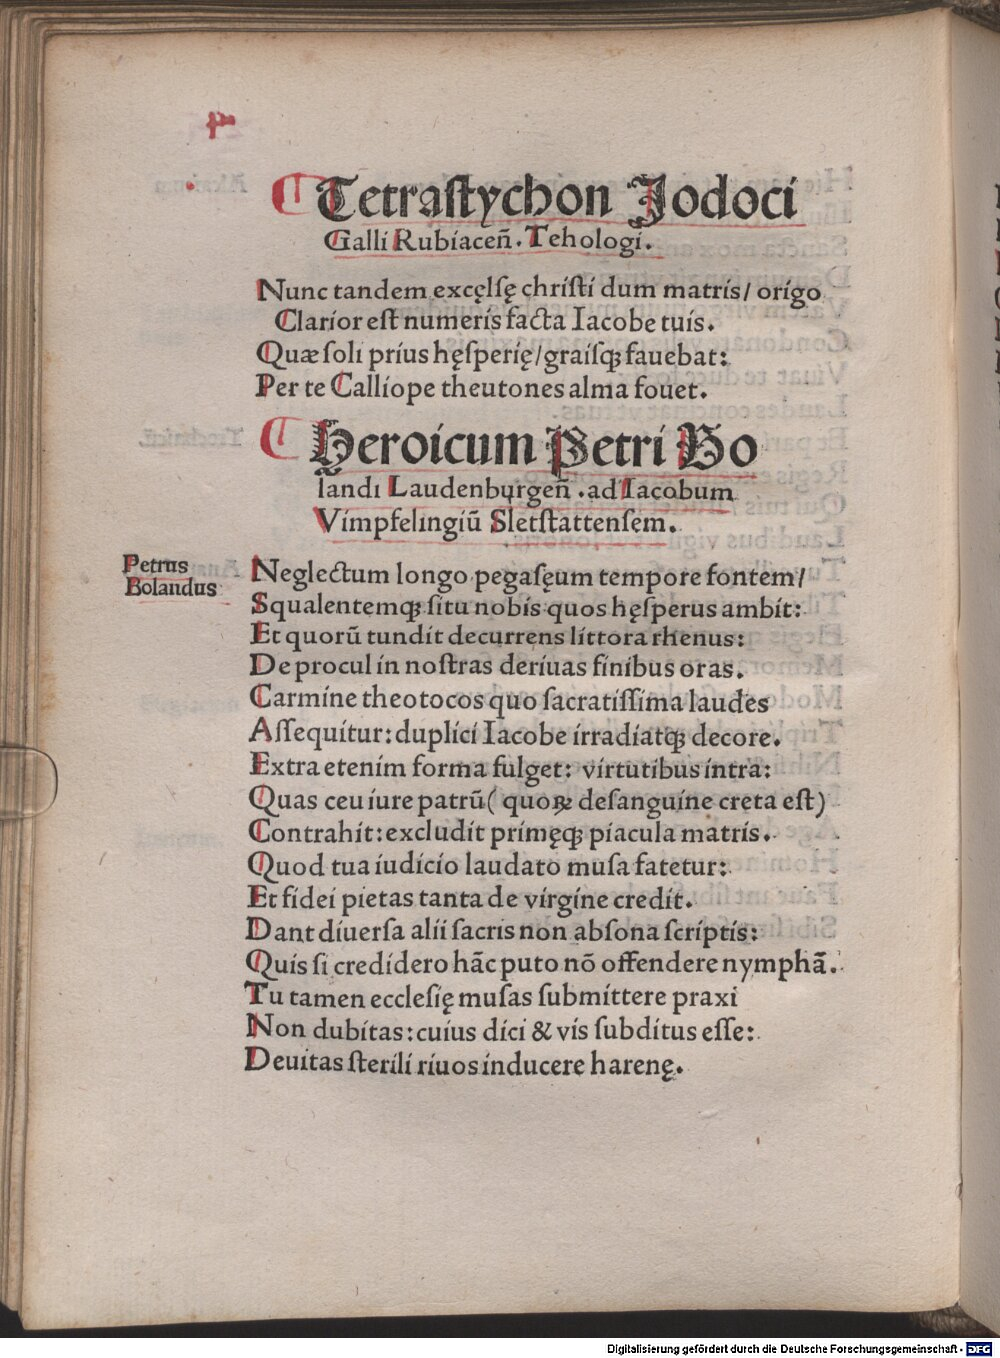 Tetrastychon Jodoci
Galli Rubiaceñ. Tehologi.
Nunc tandem excęlsę christi dum matris/ origo
Clarior est numeris facta Iacobe tuis.
Quæ soli prius hęsperię/ graisqꝫ fauebat:
Per te Calliope theutones alma fouet.
Heroicum Petri Bo
landi Laudenburgeñ. ad Iacobum
Vimpfelingiū Sletstattensem.
Petrus
Bolandus
Neglectum longo pegasęum tempore fontem/
Squalentemqꝫ situ nobis quos hęsperus ambit:
Et quorū tundit decurrens littora rhenus:
De procul in nostras deriuas finibus oras.
Carmine theotocos quo sacratissima laudes
Assequitur: duplici Iacobe irradiatqꝫ decore.
Extra etenim forma fulget: virtutibus intra:
Quas ceu iure patrū( quoꝝ de sanguine creta est)
Contrahit: excludit primęqꝫ piacula matris.
Quod tua iudicio laudato musa fatetur:
Et fidei pietas tanta de virgine credit.
Dant diuersa alii sacris non absona scriptis:
Quis si credidero hāc puto nō offendere nymphā.
Tu tamen ecclesię musas submittere praxi
Non dubitas: cuius dici & vis subditus esse:
Deuitas sterili riuos inducere harenę.
Digitalisierung gefördert durch die Deutsche Forschungsgemeinschaft - DFG